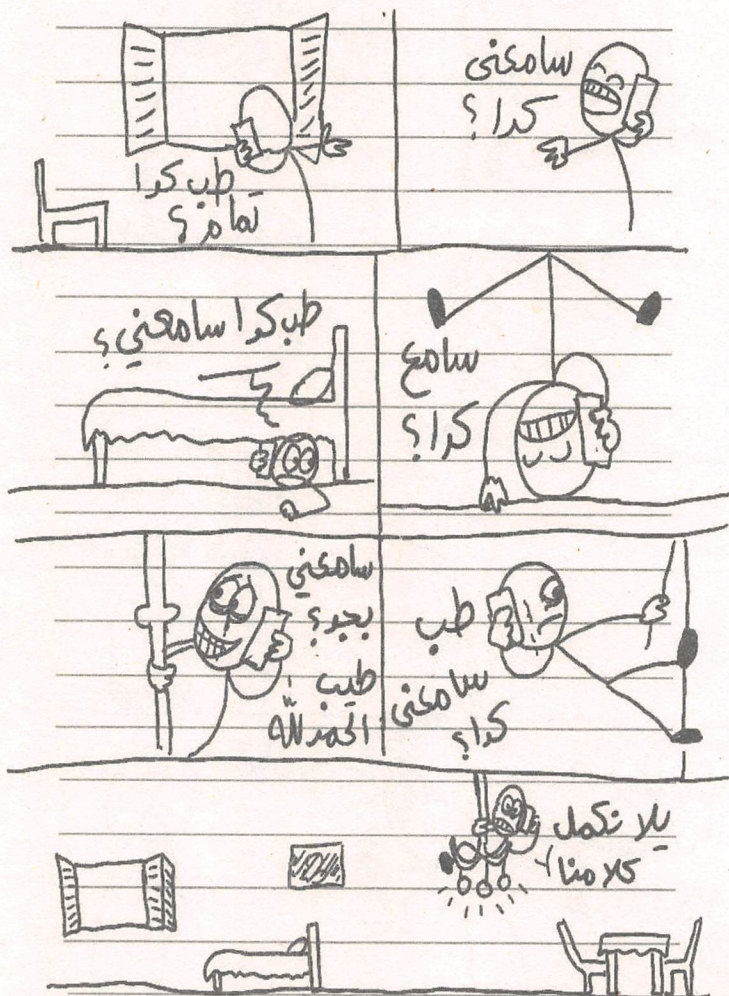 سامعنى
كدا؟
طب كدا
تمام؟
سامع
كدا؟
طب كدا سامعني؟
طب
سامعنى
كدا؟
سامعني
بجد؟
طيب
الحمدلله
يلا نكمل
كلامنا